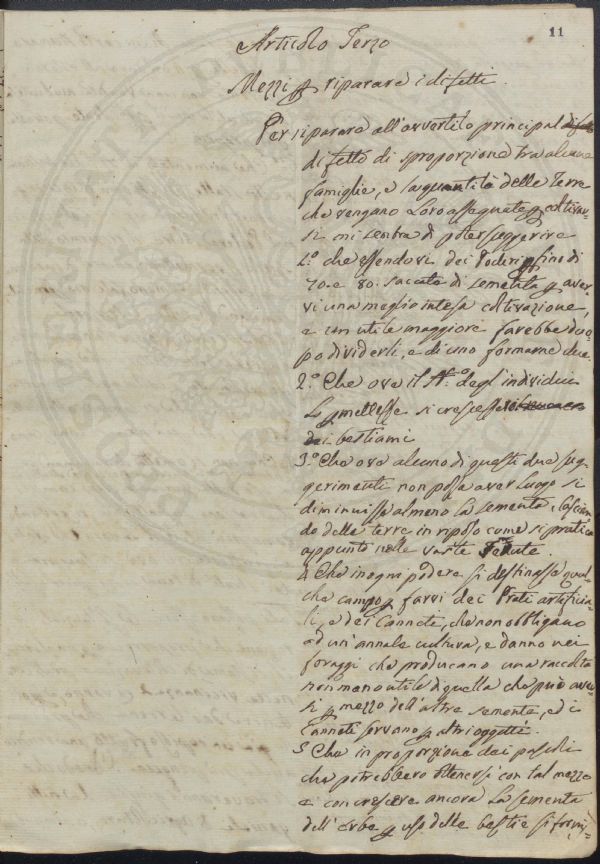 11
Articolo Terzo
Mezzi p riparare i difetti.
Per riparare all'avvertito principal
difetto di sproporzione tra alcune
famiglie, e la quantità delle Terre
che vengano Loro assegnate p coltivar-
si mi sembra di poter suggerire
1.° che essendovi dei Poderi p fino di
70. e 80. saccata di sementa p aver-
vi una meglio intesa coltivazione
e un utile maggiore sarebbe duo-
po dividerli, e di uno formarne due.
2.° Che ove il N.° degl'individui
Lo p mettesse si crescesse
dei bestiami
3.° Che ove alcuno di questi due sug-
gerimenti non possa aver luogo si
diminuisse almeno la sementa, lascian-
do delle terre in riposo come si pratica
appunto nelle vaste Tenute.
4. Che in ogni podere si destinasse qual-
che campo p farvi dei Prati artificia-
li, e dei Canneti, che non obbligano
ad un'annale cultura, e danno nei
foraggi che producano una raccolta
non meno utile di quella che può aver-
si p mezzo dell'altre semente, ed i
Canneti servano p altri oggetti.
5 Che in proporzione dei pascoli
che potrebbero ottenersi con tal mezzo
e con crescere ancora la sementa
dell'erbe p uso delle bestie si formi-